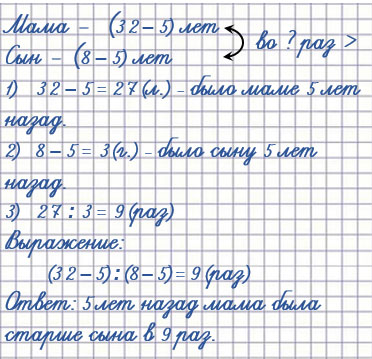 Мама – (32 – 5) лет
во ? раз >
Сын – (8 – 5) лет
1) 32 – 5 = 27 (л.) – было маме 5 лет
назад.
2) 8 – 5 = 3 (г.) – было сыну 5 лет
назад.
3) 27 : 3 = 9 (раз)
Выражение:
(32 – 5) : (8 – 5) = 9 (раз)
Ответ: 5 лет назад мама была
старше сына в 9 раз.